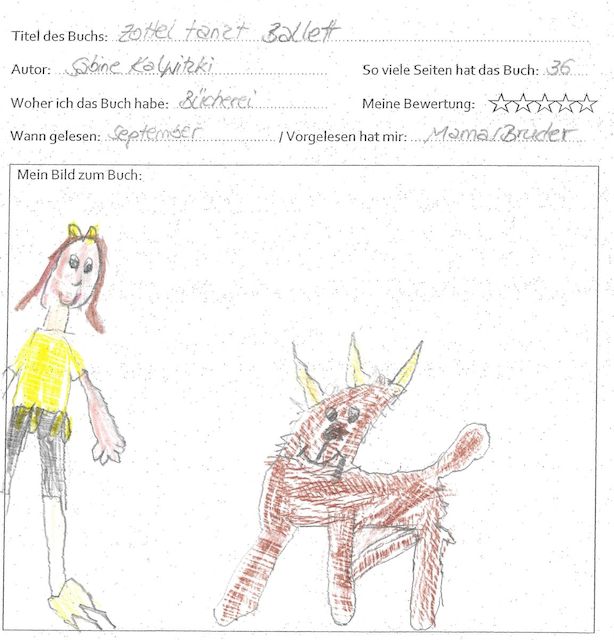 Titel des Buchs: Zottel tanzt Ballett
Autor: Sabine Kalwitzki So viele Seiten hat das Buch: 36
Woher ich das Buch habe: Bücherei Meine Bewertung:
Wann gelesen: September / Vorgelesen hat mir: Mama/Bruder
Mein Bild zum Buch: